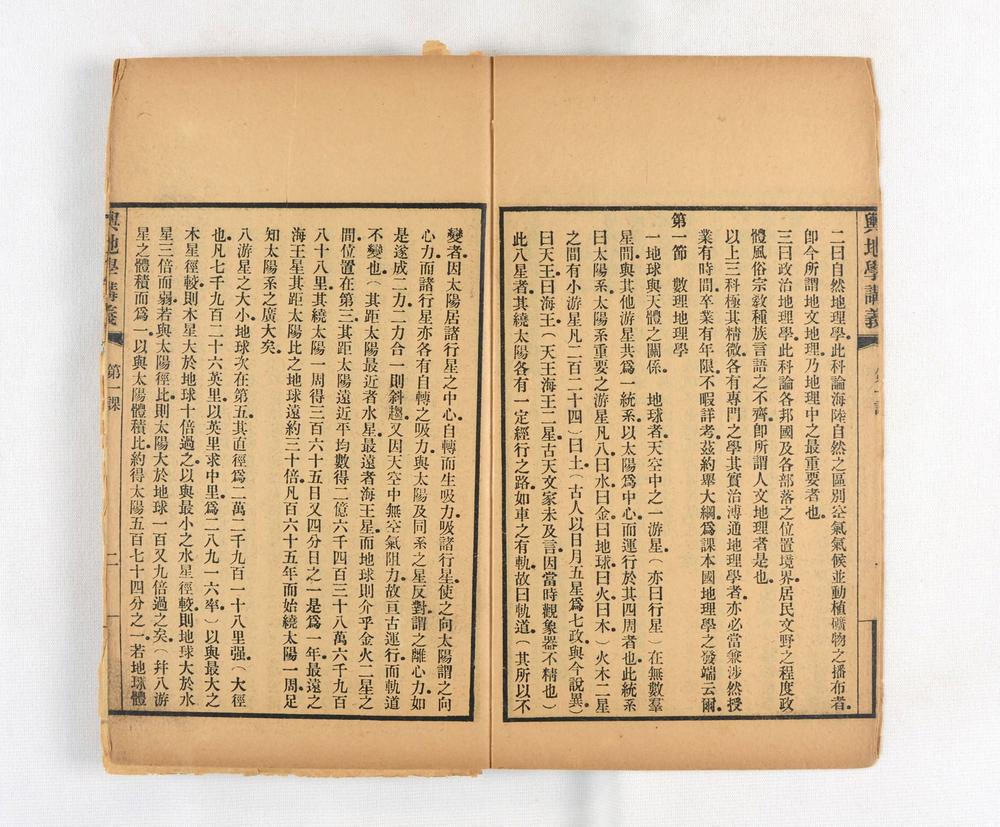 輿地學講義
二曰自然地理學。此科論海陸自然之區別空氣氣候並動植礦物之播布者。
卽今所謂地文地理。乃地理中之最重要者也。
三曰政治地理學。此科論各邦國及各部落之位置境界居民文野之程度政
體風俗宗敎種族言語之不齊。卽所謂人文地理者是也。
以上三科極其精微。各有專門之學。其實治溥通地理學者。亦必當兼涉。然授
業有時間。卒業有年限。不暇詳考。茲約舉大綱。爲課本國地理學之發端云爾。
第一節　數理地理學
一地球與天體之關係。　地球者。天空中之一游星。(亦曰行星)在無數羣
星間。與其他游星共爲一統系。以太陽爲中心而運行於其四周者也。此統系
曰太陽系。太陽系重要之游星凡八。曰水。曰金。曰地球。曰火。曰木。(火木二星
之間有小游星凡二百二十四)曰土。(古人以日月五星爲七政與今說異)
曰天王。曰海王。(天王海王二星古天文家未及言因當時觀象器不精也)
此八星者。其繞太陽各有一定經行之路。如車之有軌。故曰軌道。(其所以不
變者因太陽居諸行星之中心自轉而生吸力。吸諸行星。使之向太陽。謂之向
心力。而諸行星亦各有自轉之吸力。與太陽及同系之星反對。謂之離心力。如
是遂成二力。二力合一則斜趨。又因天空中無空氣阻力。故亘古運行。而軌道
不變也。(其距太陽最近者水星。最遠者海王星。而地球則介乎金火二星之
間。位置在第三。其距太陽遠近平均數得二億六千四百三十八萬六千九百
八十八里。其繞太陽一周得三百六十五日又四分日之一。是爲一年。最遠之
海王星。其距太陽比之地球遠約三十倍。凡百六十五年而始繞太陽一周。足
知太陽系之廣大矣。
八游星之大小。地球次在第五。其直徑爲二萬二千九百一十八里强。(大徑
也。凡七千九百二十六英里。以英里求中里。爲二八九一六率。)以與最大之
木星徑較。則木星大於地球十倍過之。以與最小之水星徑較。則地球大於水
星三倍而弱。若與太陽徑比。則太陽大於地球一百又九倍過之矣。(幷八游
星之體積而爲一。以與太陽體積比。約得太陽五百七十四分之一。若地球體
輿地學講義　第一課　二